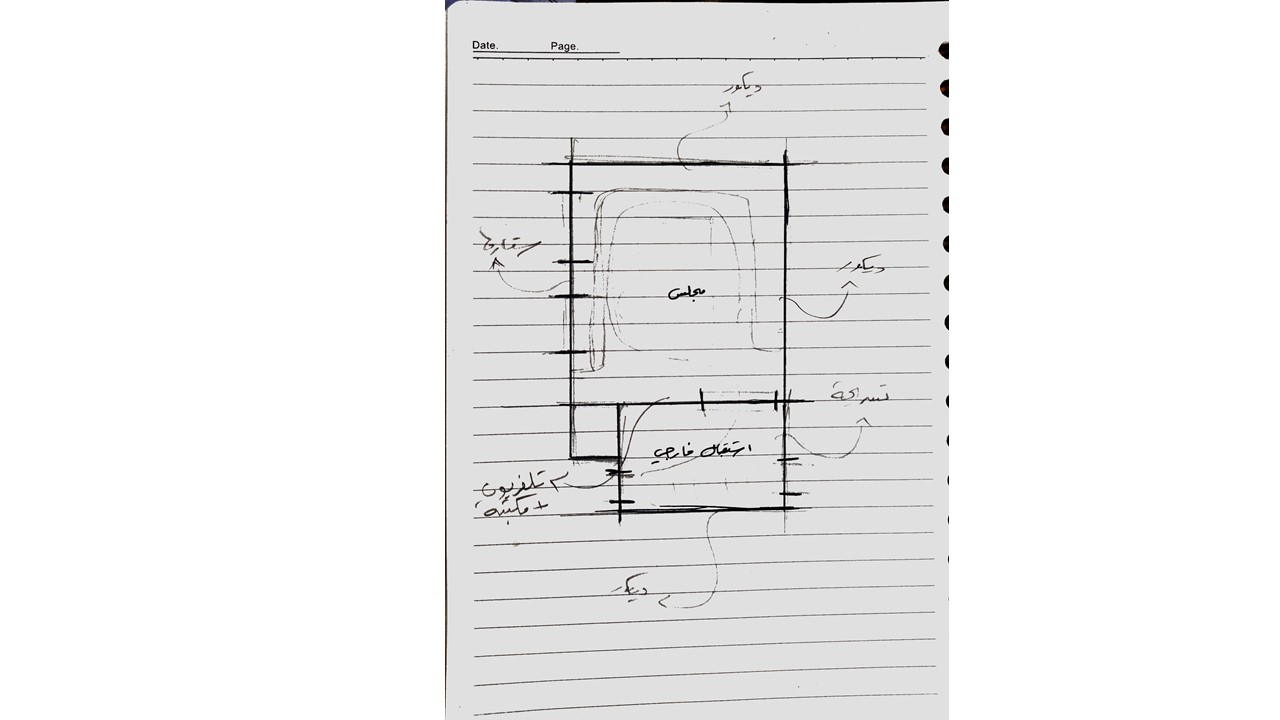 Date. Page.
ديكور
ستارة
ديكور
مجلس
تسراحة
استقبال خارجي
تلفزيون
+ مكتبة
ديكور